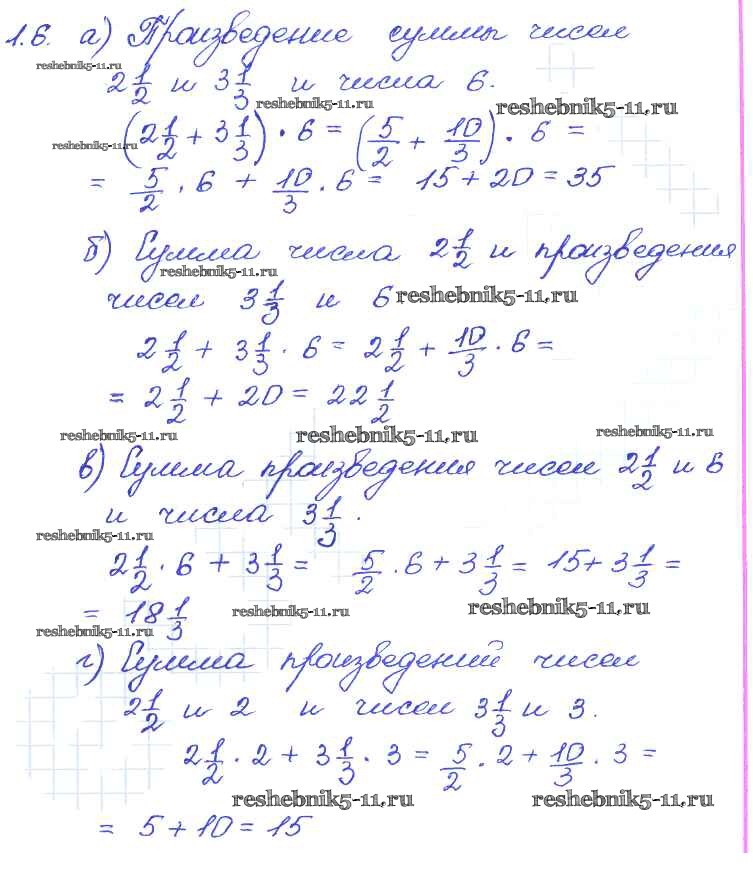 1.6. а) Произведение суммы чисел
reshebnik5-11.ru
2 1/2 и 3 1/3 и числа 6.
reshebnik5-11.ru reshebnik5-11.ru
reshebnik5-11.ru
(2 1/2 + 3 1/3) · 6 = (5/2 + 10/3) · 6 =
= 5/2 · 6 + 10/3 · 6 = 15 + 20 = 35
б) Сумма числа 2 1/2 и произведения
reshebnik5-11.ru
чисел 3 1/3 и 6 reshebnik5-11.ru
2 1/2 + 3 1/3 · 6 = 2 1/2 + 10/3 · 6 =
= 2 1/2 + 20 = 22 1/2
reshebnik5-11.ru reshebnik5-11.ru reshebnik5-11.ru
в) Сумма произведения чисел 2 1/2 и 6
и числа 3 1/3.
reshebnik5-11.ru
2 1/2 · 6 + 3 1/3 = 5/2 · 6 + 3 1/3 = 15 + 3 1/3 =
= 18 1/3 reshebnik5-11.ru reshebnik5-11.ru
reshebnik5-11.ru
г) Сумма произведений чисел
2 1/2 и 2 и чисел 3 1/3 и 3.
2 1/2 · 2 + 3 1/3 · 3 = 5/2 · 2 + 10/3 · 3 =
reshebnik5-11.ru reshebnik5-11.ru
= 5 + 10 = 15